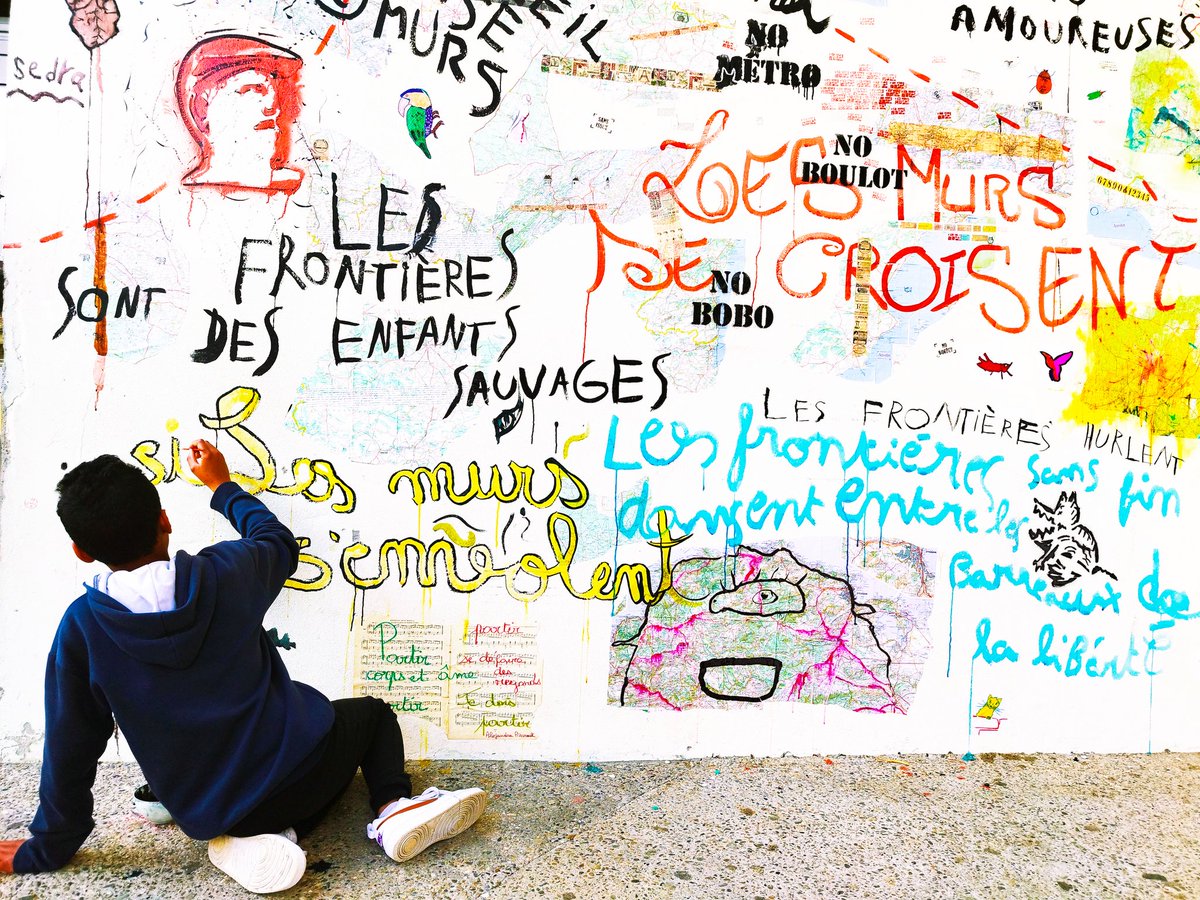 MURS
AMOUREUSES
sedra
NO
MÉTRO
NO
BOULOT
NO
BOBO
LES MURS
SE CROISENT
LES
FRONTIÈRES
SONT
DES ENFANTS
SAUVAGES
6789041234
LES FRONTIÈRES HURLENT
si Les murs
s'emvolent
Les frontières sans fin
dansent entre les
Barreaux de
la libérté
Partir
corps et âme
partir
partir
se défaire
des
regards
Je dois
partir